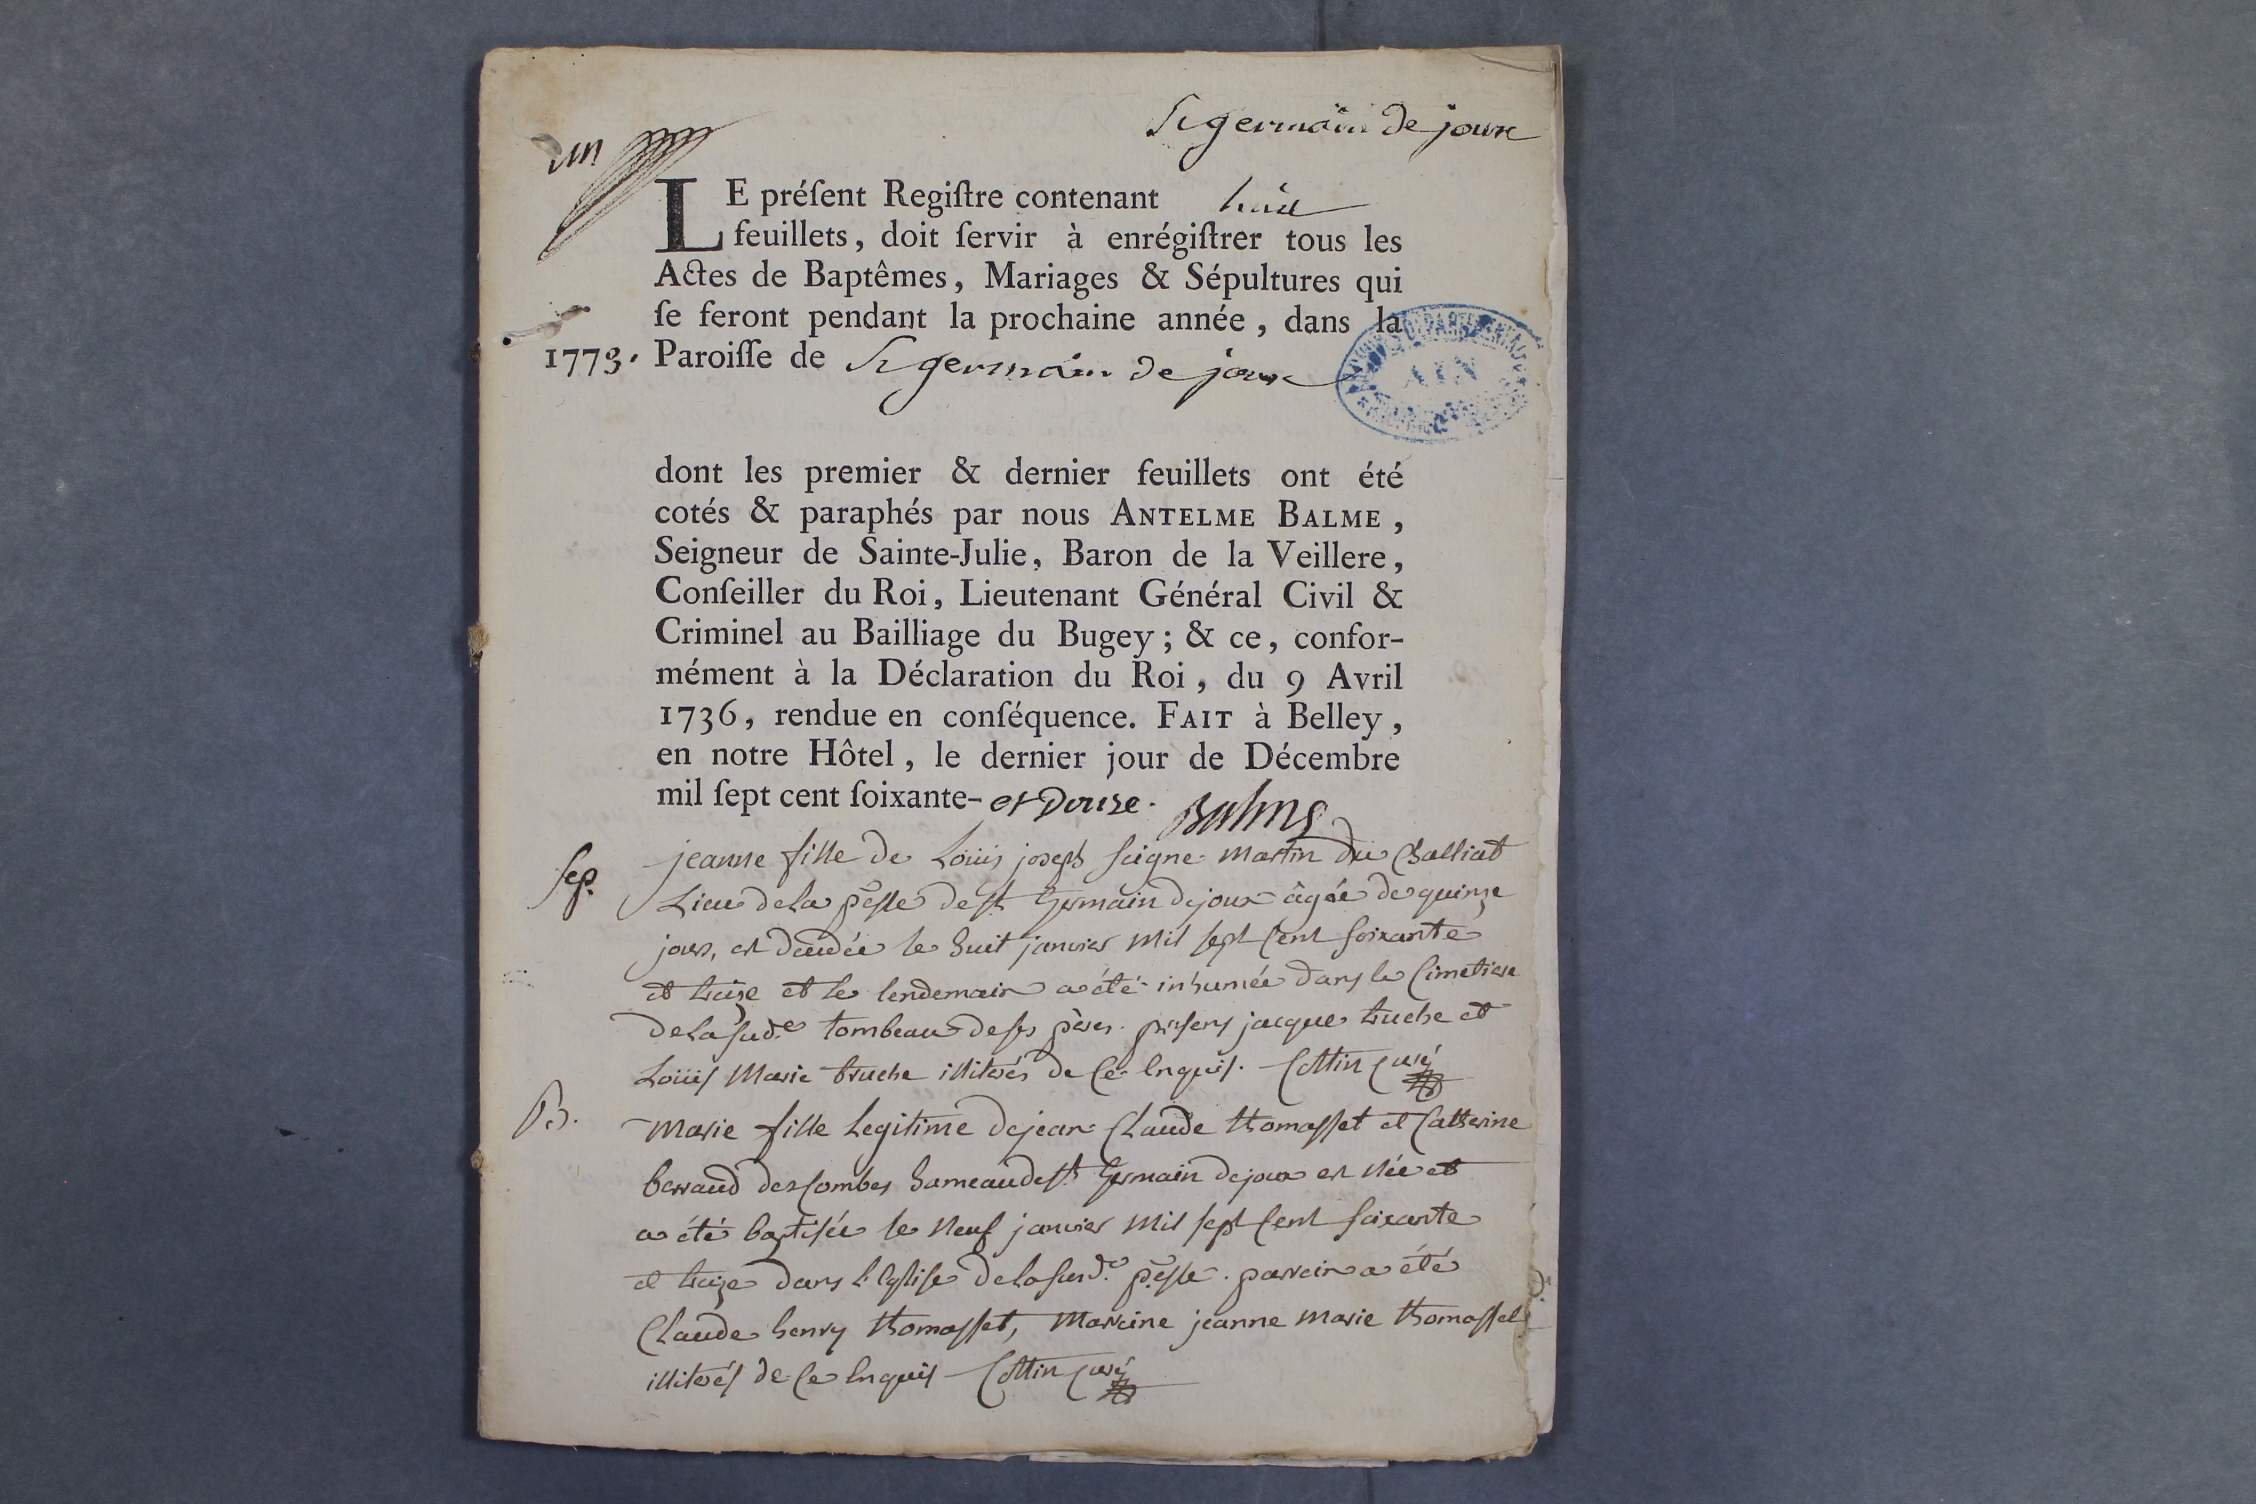 St germain de joux
un
LE préſent Regiſtre contenant huit
feuillets, doit ſervir à enrégiſtrer tous les
Actes de Baptêmes, Mariages & Sépultures qui
ſe feront pendant la prochaine année, dans la
1773. Paroiſſe de St germain de joux
AIN
dont les premier & dernier feuillets ont été
cotés & paraphés par nous ANTELME BALME,
Seigneur de Sainte-Julie, Baron de la Veillere,
Conſeiller du Roi, Lieutenant Général Civil &
Criminel au Bailliage du Bugey; & ce, confor-
mément à la Déclaration du Roi, du 9 Avril
1736, rendue en conſéquence. FAIT à Belley,
en notre Hôtel, le dernier jour de Décembre
mil ſept cent ſoixante- et Douze. Balme
Sep. jeanne fille de Loüis joseph Seigne martin du Challiat
Lieu de la pesse de st Germain de joux âgée de quinze
jours, est décédée le huit janvier mil sept Cent soixante
et treize et le lendemain a été inhumée dans le Cimetiere
de la sud.e tombeau de ses pères. présens jacque truche et
Loüis Marie truche illiterés de Ce Enquis. Cottin Curé
B. Marie fille Legitime de jean Claude thomasset et Catherine
berraud des Combes hameau de st Germain de joux est Née et
a été baptisée le Neuf janvier mil sept Cent soixante
et treize dans l'Eglise de la susd.e pesse. parrein a été
Claude henry thomasset, Marreine jeanne marie thomasset
illiterés de Ce Enquis Cottin Curé